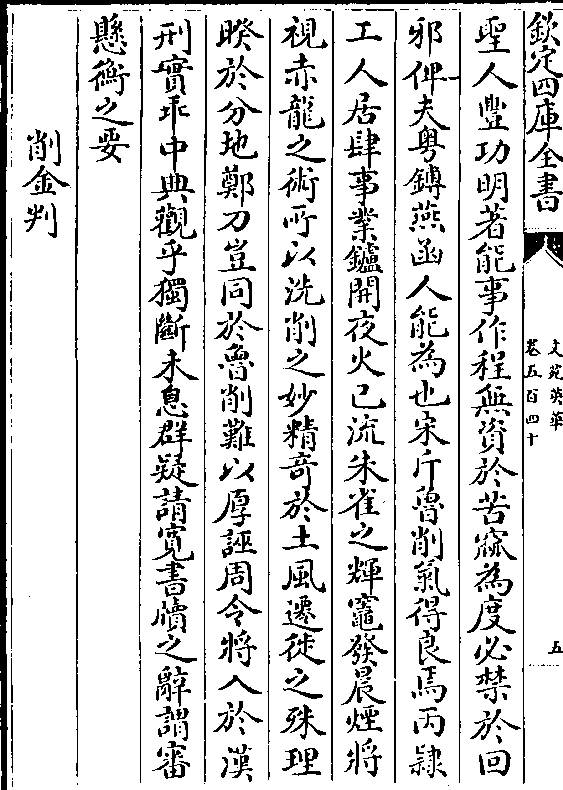 欽定四庫全書
文苑英華
卷五百四十
五
聖人豐功明著能事作程無資於苦窳為度必禁於回
邪俾夫粤鎛燕函人能為也宋斤魯削氣得良焉丙隸
工人居肆事業鑪開夜火已流朱雀之輝竈發晨煙將
視赤龍之術所以洗削之妙精竒於土風遷徙之殊理
暌於分地鄭刀豈同於魯削難以厚誣周令將入於漢
刑實乖中典觀乎獨斷未息群疑請寛書牘之辭謂審
懸衡之要
削金判